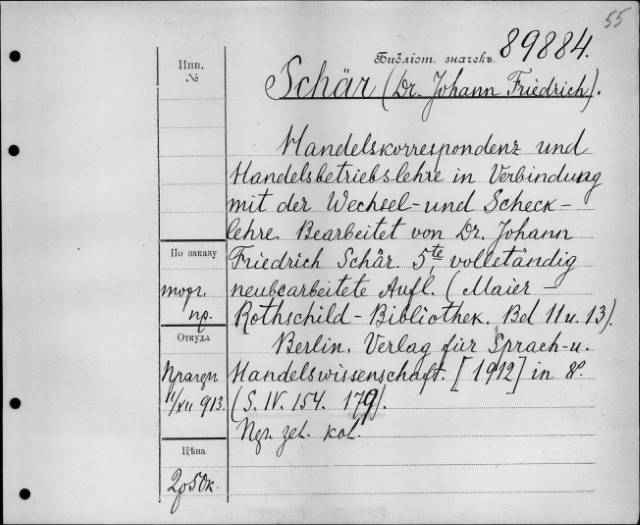 55
Библіот. значекъ 89884.
Инв. №
Schär (Dr. Johann Friedrich).
Handelskorrespondenz und
Handelsbetriebslehre in Verbindung
mit der Wechsel- und Scheck-
lehre. Bearbeitet von Dr. Johann
По заказу
Friedrich Schär. 5te vollständig
торг. пр.
neubearbeitete Aufl. (Maier-
Rothschild-Bibliothek. Bd 11 u. 13).
Откуда
Berlin. Verlag für Sprach- u.
Handelswissenschaft. [1912] in 8º.
11/XII 913.
(S. IV. 154. 179).
Цѣна
2р50к.